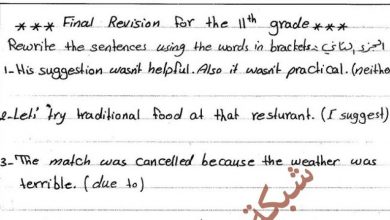 *** Final Revision for the 11th grade ***
Rewrite the sentences using the words in brackets.
1-His suggestion wasn't helpful. Also it wasn't practical. (neithe
2-Let's try traditional food at that resturant. (I suggest)
3-The match was cancelled because the weather was
terrible. (due to)
شبكة